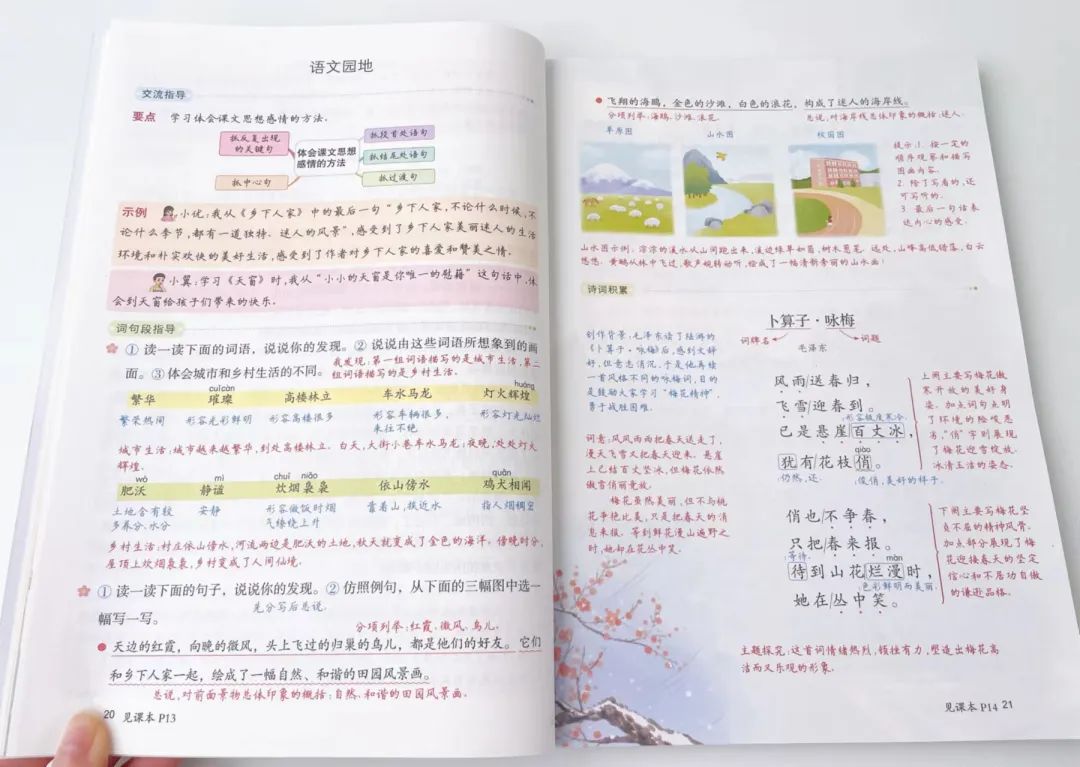 语文园地
交流指导
要点 学习体会课文思想感情的方法。
抓反复出现
的关键句
抓中心句
体会课文思想
感情的方法
抓段首处语句
抓结尾处语句
抓过渡句
示例 小优:我从《乡下人家》中的最后一句“乡下人家,不论什么时候,不
论什么季节,都有一道独特、迷人的风景”,感受到了乡下人家美丽迷人的生活
环境和朴实欢快的美好生活,感受到了作者对乡下人家的喜爱和赞美之情。
小翼:学习《天窗》时,我从“小小的天窗是你唯一的慰藉”这句话中,体
会到天窗给孩子们带来的快乐。
词句段指导
① 读一读下面的词语,说说你的发现。② 说说由这些词语所想象到的画
面。③ 体会城市和乡村生活的不同。
我发现:第一组词语描写的是城市生活,第二
组词语描写的是乡村生活。
cuǐ càn huáng
繁华 璀璨 高楼林立 车水马龙 灯火辉煌
繁荣热闹 形容光彩鲜明 形容高楼很多 形容车辆很多,
来往不绝 形容灯光灿烂
城市生活:城市越来越繁华,到处高楼林立。白天,大街小巷车水马龙;夜晚,处处灯火
辉煌。
wò mì chuī niǎo quǎn
肥沃 静谧 炊烟袅袅 依山傍水 鸡犬相闻
土地含有较
多养分、水分 安静 形容做饭时烟
气缭绕上升 靠着山,挨近水 指人烟稠密
乡村生活:村庄依山傍水,河流两边是肥沃的土地,秋天就变成了金色的海洋。傍晚时分,
屋顶上炊烟袅袅,乡村变成了人间仙境。
① 读一读下面的句子,说说你的发现。② 仿照例句,从下面的三幅图中选一
幅写一写。
先分写后总说。
分项列举:红霞、微风、鸟儿。
天边的红霞,向晚的微风,头上飞过的归巢的鸟儿,都是他们的好友。它们
和乡下人家一起,绘成了一幅自然、和谐的田园风景画。
总说,对前面景物总体印象的概括:自然、和谐的田园风景画。
20 见课本 P13
飞翔的海鸥,金色的沙滩,白色的浪花,构成了迷人的海岸线。
分项列举:海鸥、沙滩、浪花。 总说,对海岸线总体印象的概括:迷人。
草原图 山水图 校园图
提示:1. 按一定的
顺序观察和描写
图画内容。
2. 除了写看的,还
可写听的。
3. 最后一句话表
达内心的感受。
山水图示例:淙淙的溪水从山间跑出来,溪边绿草如茵,树木葱茏。远处,山峰高低错落,白云
悠悠。黄鹂从林中飞过,歌声婉转动听,绘成了一幅清新秀丽的山水画!
诗词积累
卜算子·咏梅
词牌名 词题
毛泽东
创作背景:毛泽东读了陆游的
《卜算子·咏梅》后,感到文辞
好,但意志消沉,于是他再续
一首风格不同的咏梅词,目的
是鼓励大家学习“梅花精神”,
勇于战胜困难。
词意:风风雨雨把春天送走了,
漫天飞雪又把春天迎来。悬崖
上已结百丈坚冰,但梅花依然
傲雪俏丽竞放。
梅花虽然美丽,但不与桃
花争艳比美,只是把春天的消
息来报。等到鲜花漫山遍野之
时,她却在花丛中笑。
风雨/送春归,
飞雪/迎春到。
形容极度寒冷。
已是悬崖/百丈冰,
qiào
犹有/花枝俏。
仍然,还。 俊俏,美好的样子。
上阕主要写梅花傲
寒开放的美好身
姿。加点词句点明
了环境的险峻恶
劣,“俏”字则展现
了梅花迎雪绽放、
冰清玉洁的姿态。
俏也/不争春,
只把/春来报。
等待。 màn
待到/山花/烂漫时,
色彩鲜明而美丽。
她在/丛中笑。
下阕主要写梅花坚
贞不屈的精神风骨。
加点部分展现了梅
花迎接春天的坚定
信心和不居功自傲
的谦逊品格。
主题探究:这首词情绪热烈,顿挫有力,塑造出梅花高
洁而又乐观的形象。
见课本 P14 21